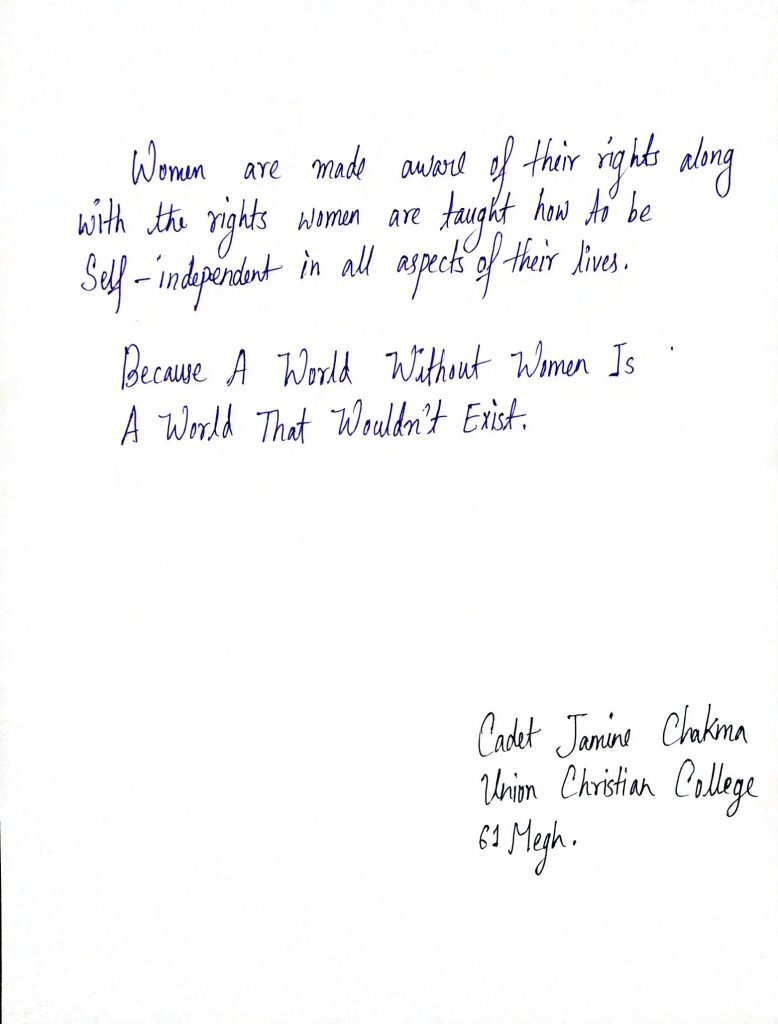 Women are made aware of their rights along
with the rights women are taught how to be
Self-independent in all aspects of their lives.
Because A World Without Women Is
A World That Wouldn't Exist.
Cadet Jamine Chakma
Union Christian College
61 Megh.